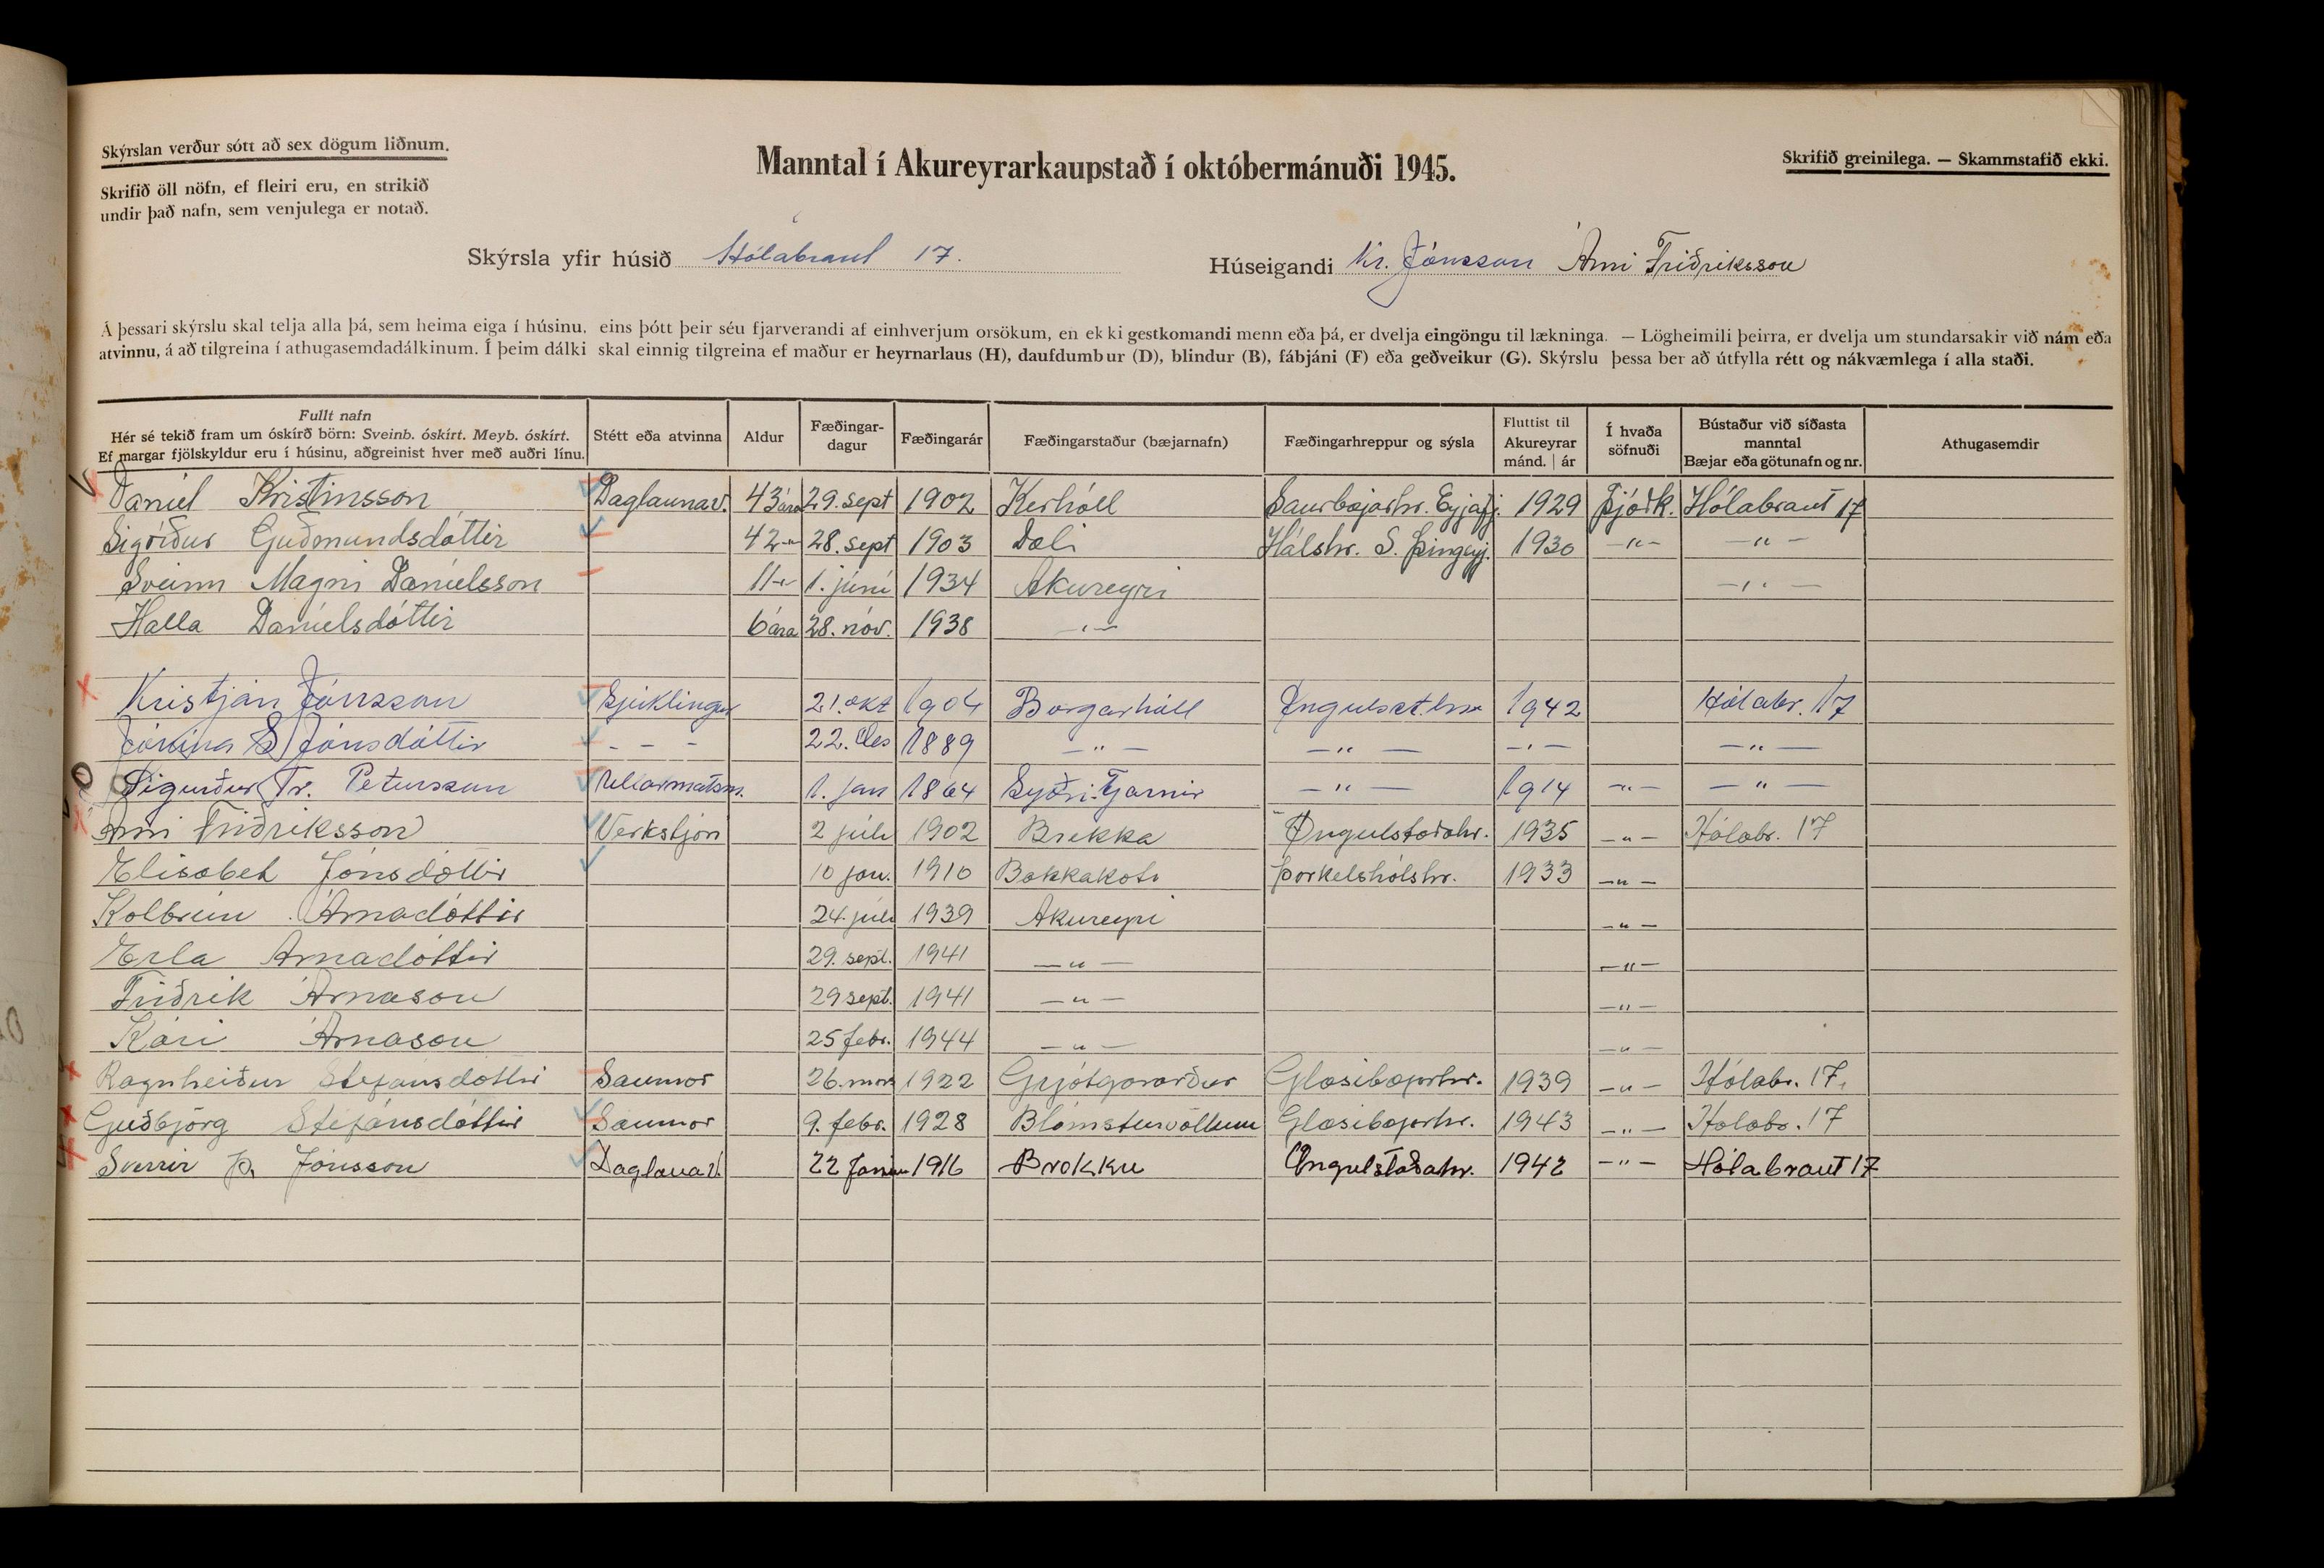 Skýrslan verður sótt að sex dögum liðnum.
Skrifið öll nöfn, ef fleiri eru, en strikið
undir það nafn, sem venjulega er notað.
Manntal í Akureyrarkaupstað í októbermánuði 1945.
Skrifið greinilega. — Skammstafið ekki.
Skýrsla yfir húsið Hólabraut 17.
Húseigandi Kr. Jónsson Árni Friðriksson
Á þessari skýrslu skal telja alla þá, sem heima eiga í húsinu, eins þótt þeir séu fjarverandi af einhverjum orsökum, en ekki gestkomandi menn eða þá, er dvelja eingöngu til lækninga. — Lögheimili þeirra, er dvelja um stundarsakir við nám eða
atvinnu, á að tilgreina í athugasemdadálkinum. Í þeim dálki skal einnig tilgreina ef maður er heyrnarlaus (H), daufdumbur (D), blindur (B), fábjáni (F) eða geðveikur (G). Skýrslu þessa ber að útfylla rétt og nákvæmlega í alla staði.
Fullt nafn
Hér sé tekið fram um óskírð börn: Sveinb. óskírt. Meyb. óskírt.
Ef margar fjölskyldur eru í húsinu, aðgreinist hver með auðri línu.
Stétt eða atvinna
Aldur
Fæðingar-
dagur
Fæðingarár
Fæðingarstaður (bæjarnafn)
Fæðingarhreppur og sýsla
Fluttist til
Akureyrar
mánd. | ár
Í hvaða
söfnuði
Bústaður við síðasta
manntal
Bæjar eða götunafn og nr.
Athugasemdir
Daníel Kristinsson Daglaunav. 43 ára 29. sept 1902 Kerhóll Saurbæjarhr. Eyjafj. 1929 Þjóðk. Hólabraut 17
Sigríður Guðmundsdóttir 42 -"- 28. sept 1903 Dæli Hálshr. S. Þingeyj. 1930 -"- -"-
Sveinn Magni Daníelsson 11 -"- 1. júní 1934 Akureyri -"-
Halla Daníelsdóttir 6 ára 28. nóv. 1938 -"-
Kristján Jónsson Sjúklingur 21. okt 1904 Borgarhóll Öngulsst.hr 1942 Hólabr. 17
Jónína S Jónsdóttir - - - 22. des 1889 -"- -"- -"- -"-
Sigurður Tr. Petursson 1. jan 1864 Syðri-Tjarnir -"- 1914 -"- -"-
Árni Friðriksson Verkstjóri 2 júli 1902 Brekka Öngulstaðahr. 1935 -"- Hólabr. 17
Elisabet Jónsdóttir 10 jan. 1910 Bakkakoti Þorkelshólshr. 1933 -"-
Kolbrún Árnadóttir 24. júli 1939 Akureyri -"-
Erla Árnadóttir 29. sept. 1941 -"- -"-
Friðrik Árnason 29 sept. 1941 -"- -"-
Kári Árnason 25 febr. 1944 -"- -"-
Ragnheiður Stefánsdóttir Saumar 26. mars 1922 Grjótgarður Glæsibæjarhr. 1939 -"- Hólabr. 17.
Guðbjörg Stefánsdóttir Saumar 9. febr. 1928 Blómsturvöllum Glæsibæjarhr. 1943 -"- Holabr. 17
Sverrir Þ. Jónsson Daglauav. 22 Janúar 1916 Brekku Öngulstaðahr. 1942 -"- Hólabraut 17